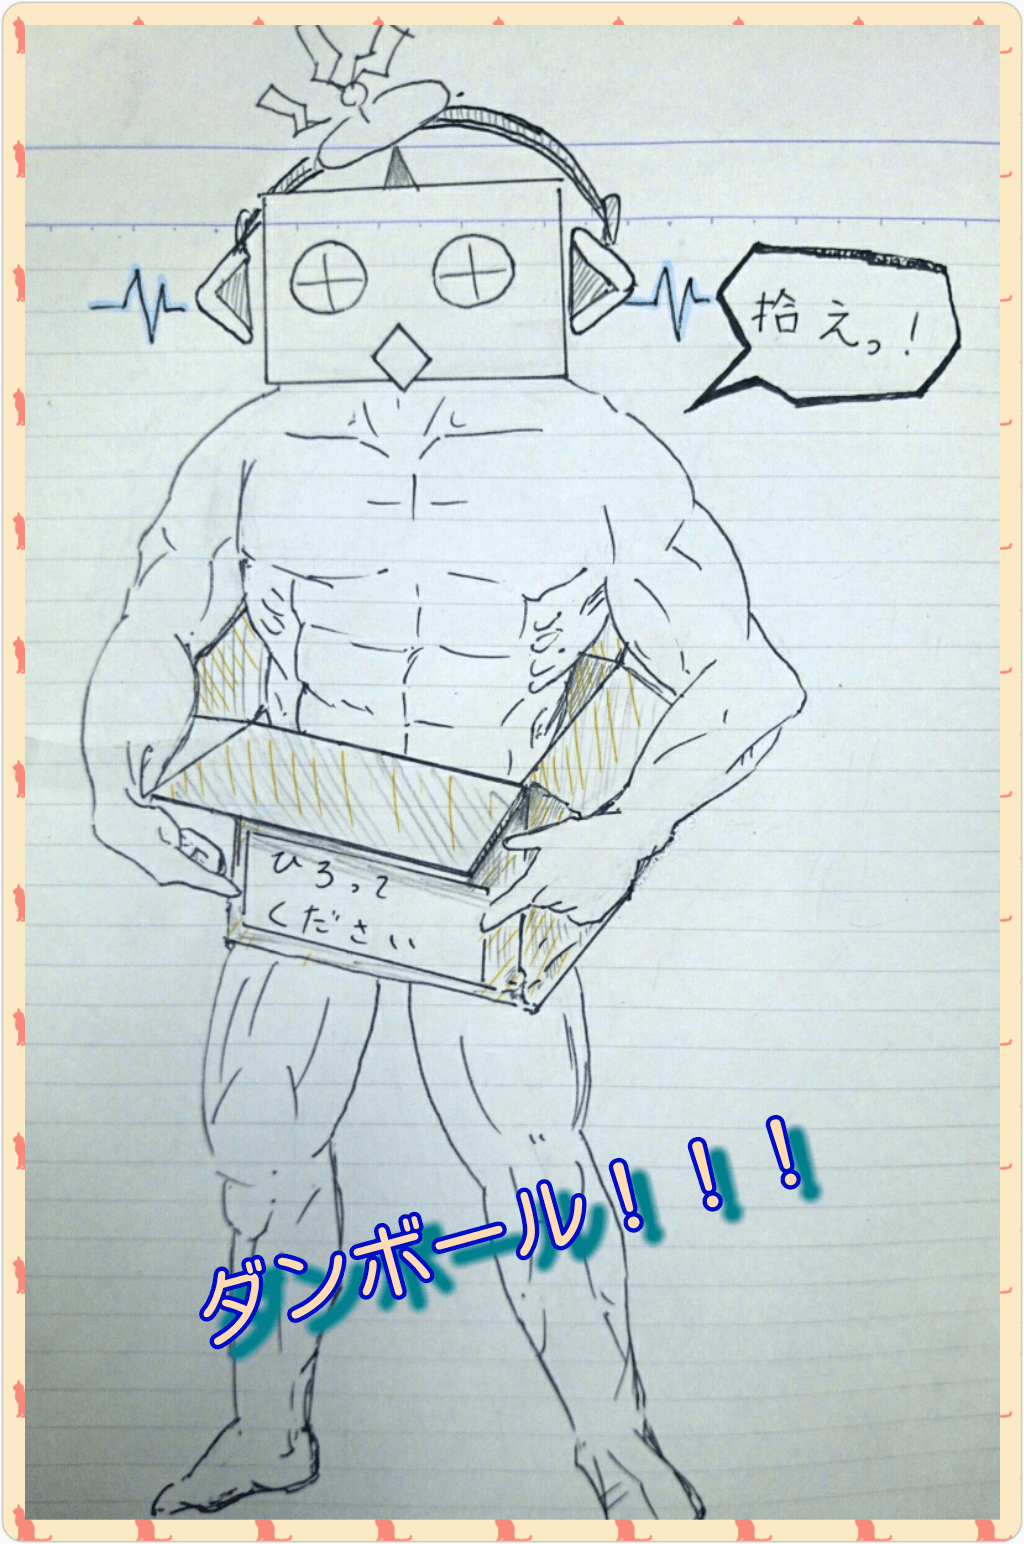 拾えっ!
ひろって
ください
ダンボール!!!